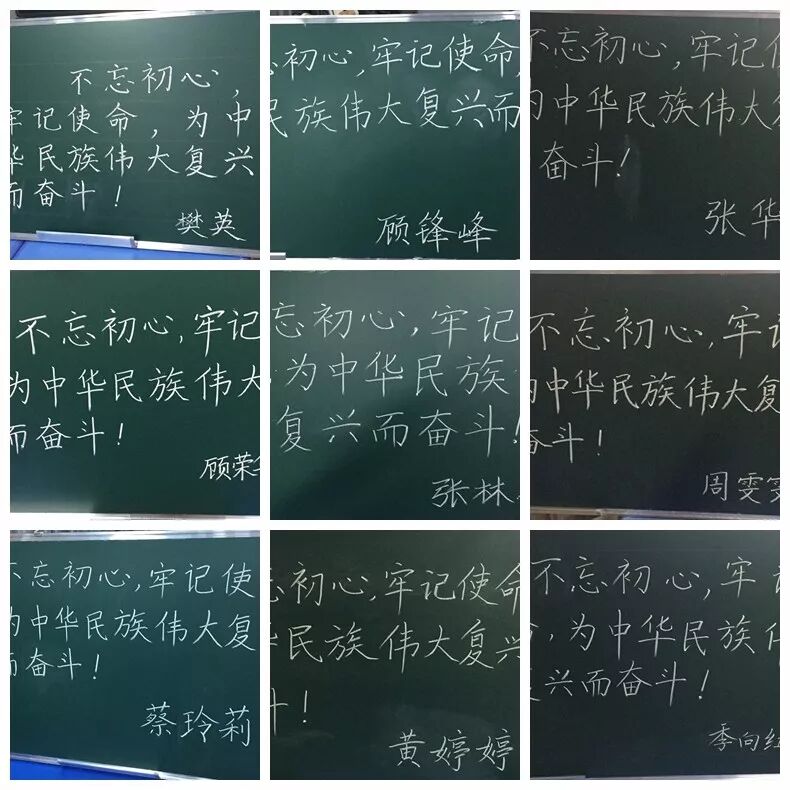 不忘初心，
牢记使命，为中
华民族伟大复兴
而奋斗！
樊英
初心,牢记使命,
民族伟大复兴而
顾锋峰
不忘初心,牢记使
为中华民族伟大复
奋斗!
张华
不忘初心,牢记
为中华民族伟大
而奋斗!
顾荣
忘初心,牢记
为中华民族
复兴而奋斗!
张林
不忘初心,牢记
中华民族伟大复
奋斗!
周雯雯
不忘初心,牢记使
为中华民族伟大复
而奋斗!
蔡玲莉
初心,牢记使命
华民族伟大复兴
斗!
黄婷婷
不忘初心,牢记
命,为中华民族伟
兴而奋斗!
季向红